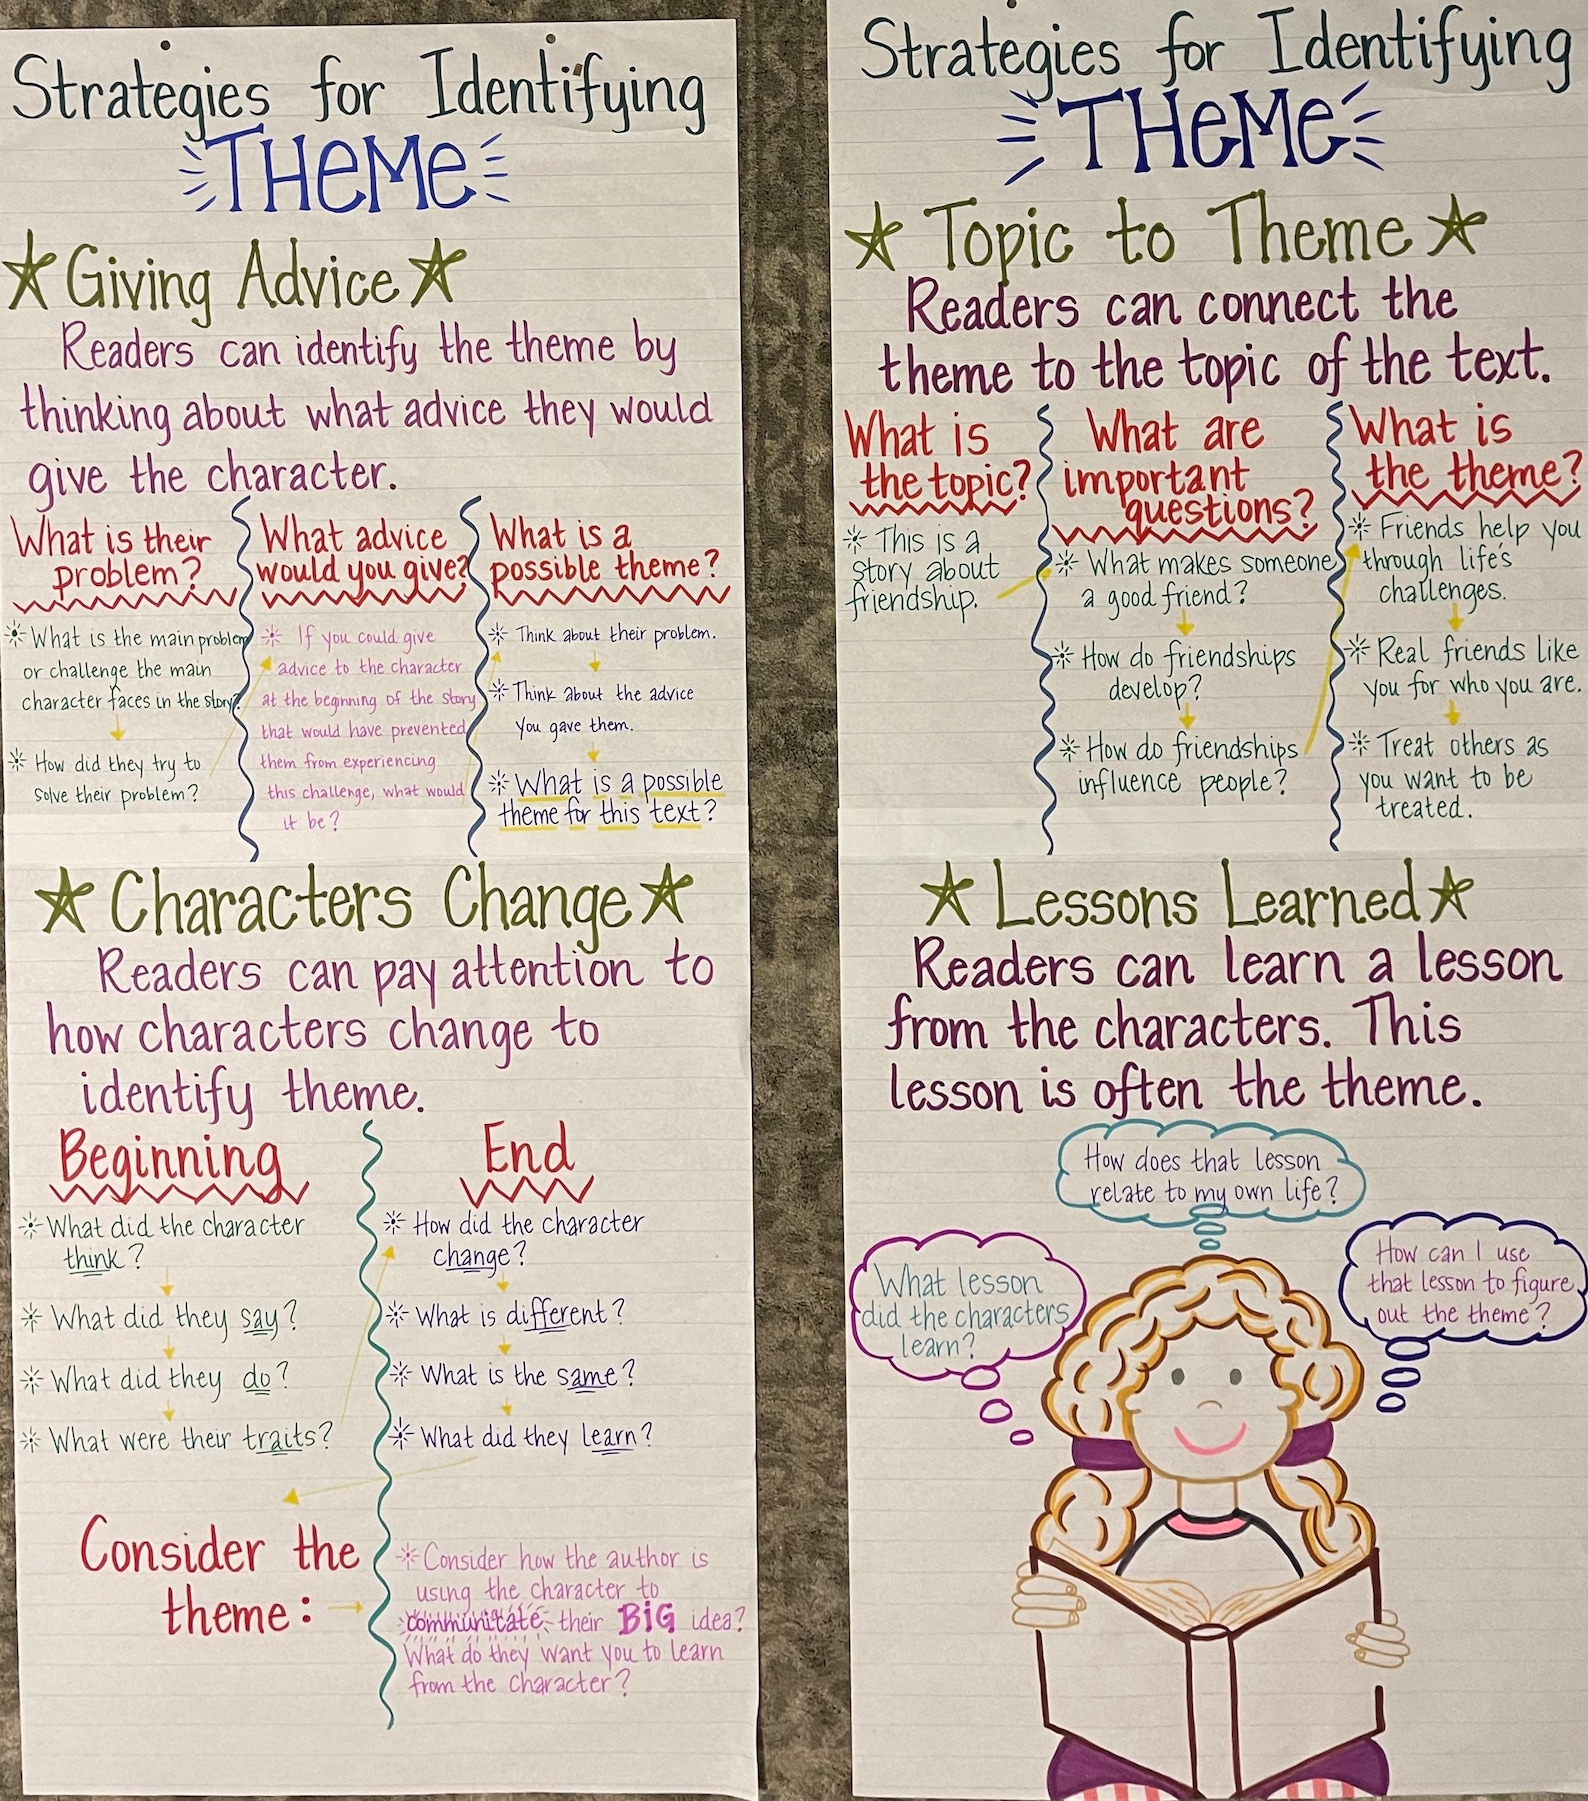 Strategies for Identifying
THEME
Giving Advice
Readers can identify the theme by
thinking about what advice they would
give the character.
What is their
problem?
What is the main problem
or challenge the main
character faces in the story?
How did they try to
solve their problem?
What advice
would you give?
If you could give
advice to the character
at the beginning of the story
that would have prevented
them from experiencing
this challenge, what would
it be?
What is a
possible theme?
Think about their problem.
Think about the advice
you gave them.
What is a possible
theme for this text?
Characters Change
Readers can pay attention to
how characters change to
identify theme.
Beginning
What did the character
think?
What did they say?
What did they do?
What were their traits?
End
How did the character
change?
What is different?
What is the same?
What did they learn?
Consider the
theme:
Consider how the author is
using the character to
communitate their BIG idea?
What do they want you to learn
from the character?
Strategies for Identifying
THEME
Topic to Theme
Readers can connect the
theme to the topic of the text.
What is
the topic?
This is a
story about
friendship.
What are
important
questions?
What makes someone
a good friend?
How do friendships
develop?
How do friendships
influence people?
What is
the theme?
Friends help you
through life's
challenges.
Real friends like
you for who you are.
Treat others as
you want to be
treated.
Lessons Learned
Readers can learn a lesson
from the characters. This
lesson is often the theme.
What lesson
did the characters
learn?
How does that lesson
relate to my own life?
How can I use
that lesson to figure
out the theme?